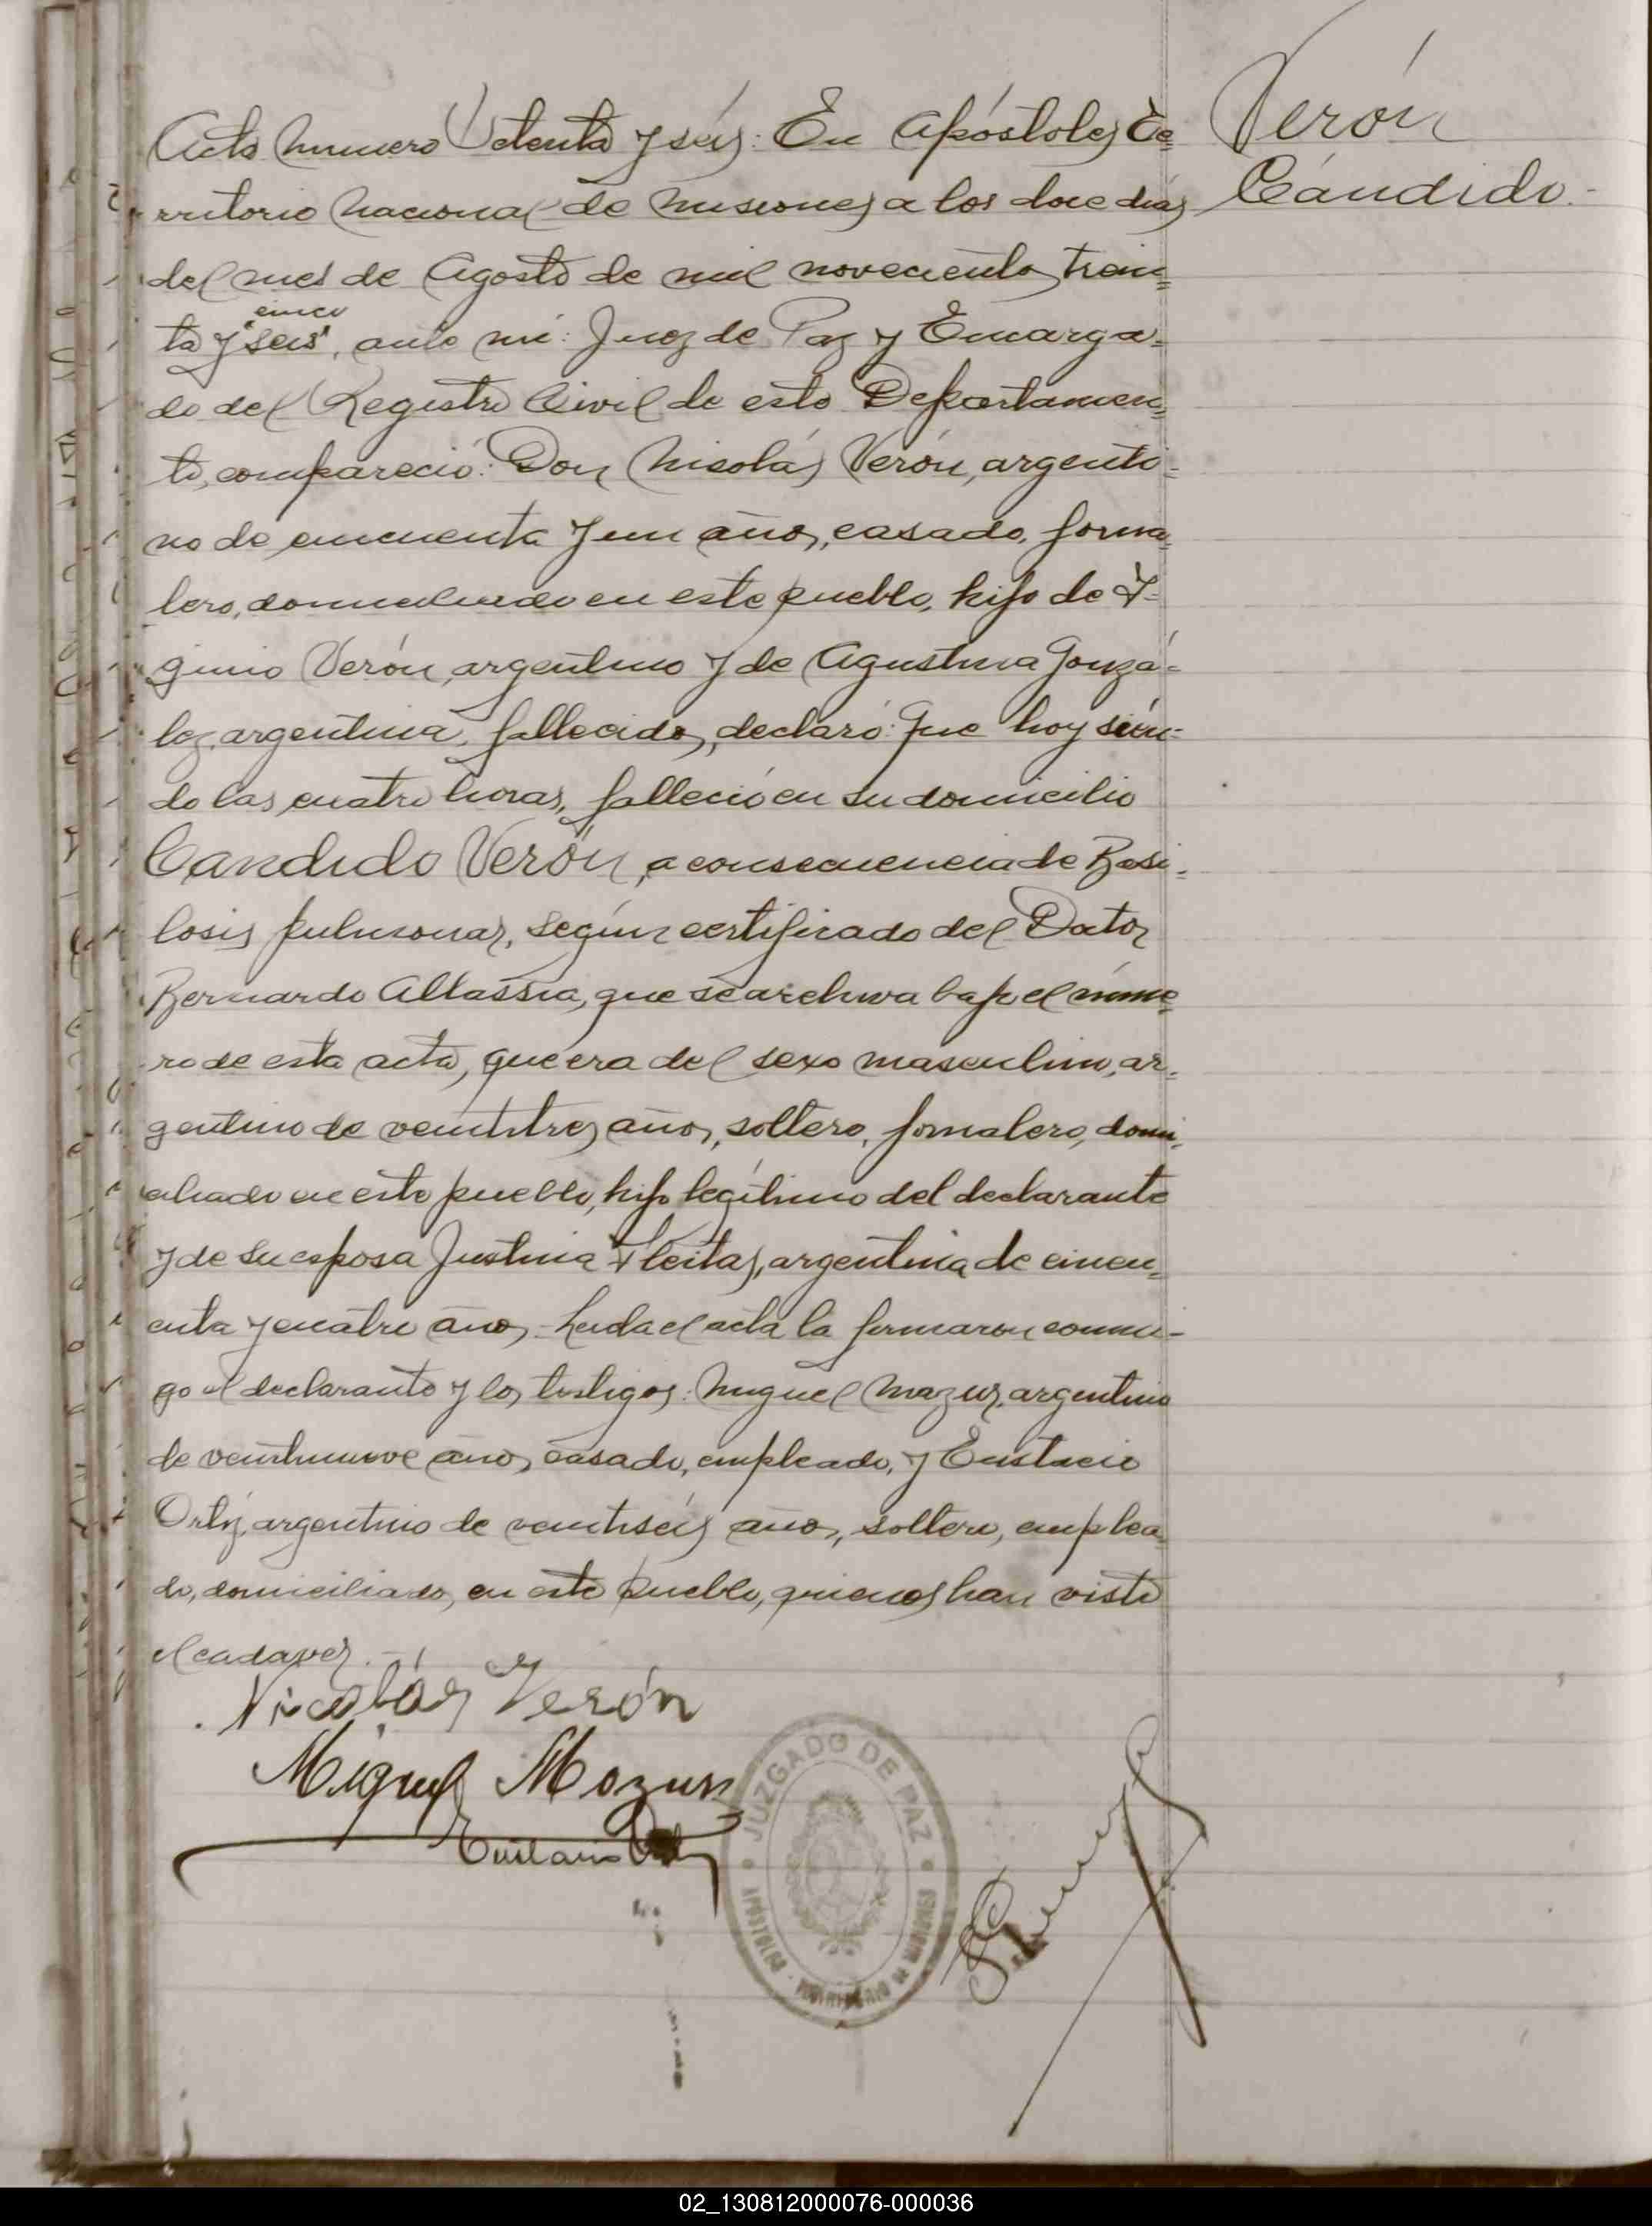 Verón
Cándido.-
Acta numero Setenta y seis: En Apóstoles Te=
rritorio Nacional de Misiones a los doce dias
del mes de Agosto de mil novecientos trein=
cinco
ta y "seis", ante mi: Juez de Paz y Encarga=
do del Registro Civil de este Departamen=
to, compareció: Don Nicolás Verón, argenti=
no de cincuenta y un años, casado, jorna=
lero, domiciliado en este pueblo, hijo de Y=
ginio Verón, argentino y de Agustina Gonzá=
lez, argentina, fallecidos, declaró: Que hoy sien=
do las cuatro horas, falleció en su domicilio
Candido Verón, a consecuencia de Basi=
losis pulmonar, según certificado del Doctor
Bernardo Allassia, que se archiva bajo el núme=
ro de esta acta, que era del sexo masculino, ar=
gentino de veintitres años, soltero, jornalero, domi=
ciliado en este pueblo, hijo legítimo del declarante
y de su esposa Justina Fleitas, argentina de cincu=
enta y cuatro años.- Leida el acta la firmaron conmi-
go el declarante y los testigos: Miguel Mazur, argentino
de veintinueve años, casado, empleado, y Eustacio
Ortiz, argentino de veintiseis años, soltero, emplea
do, domiciliados, en este pueblo, quienes han visto
el cadaver.-
Nicolás Verón
Miguel Mozur
Eustacio
JUZGADO DE PAZ
APÓSTOLES - TERRITORIO DE MISIONES
02_130812000076-000036